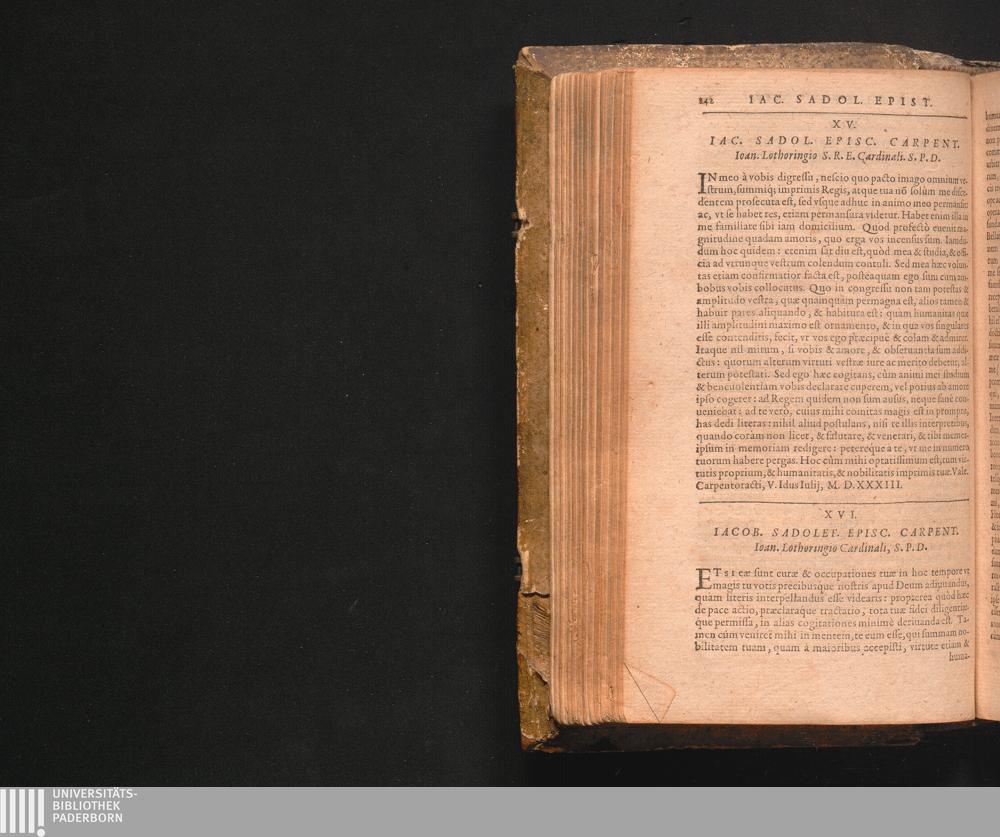 242 IAC. SADOL. EPIST.
XV.
IAC. SADOL. EPISC. CARPENT.
Ioan. Lothoringio S. R. E. Cardinali. S. P. D.
IN meo à vobis digressu, nescio quo pacto imago omnium ve-
strum, summiq; imprimis Regis, atque tua nõ solùm me disce-
dentem prosecuta est, sed vsque adhuc in animo meo permansit
ac, vt se habet res, etiam permansura videtur. Habet enim illa in
me familiare sibi iam domicilium. Quod profectò euenit ma-
gnitudine quadam amoris, quo erga vos incensus sum. Iamdu-
dum hoc quidem: etenim sat diu est, quòd mea & studia, & offi-
cia ad vtrunque vestrum colendum contuli. Sed mea hæc volun-
tas etiam confirmatior facta est, posteaquam ego sum cum am-
bobus vobis collocutus. Quo in congressu non tam potestas &
amplitudo vestra, quæ quamquam permagna est, alios tamen &
habuit pares aliquando, & habitura est: quam humanitas quæ
illi amplitudini maximo est ornamento, & in qua vos singulares
esse contenditis, fecit, vt vos ego præcipuè & colam & admirer.
Itaque nil mirum, si vobis & amore, & obseruantia sum addi-
ctus: quorum alterum virtuti vestræ iure ac merito debetur, al-
terum potestati. Sed ego hæc cogitans, cùm animi mei studium
& beneuolentiam vobis declarare cuperem, vel potius ab amore
ipso cogerer: ad Regem quidem non sum ausus, neque sanè con-
ueniebat: ad te verò, cuius mihi comitas magis est in promptu,
has dedi literas: nihil aliud postulans, nisi te illis interpretibus,
quando coràm non licet, & salutare, & venerari, & tibi memet-
ipsum in memoriam redigere: petereque a te, vt me in numero
tuorum habere pergas. Hoc cùm mihi optatissimum est, tum vir-
tutis proprium, & humanitatis, & nobilitatis imprimis tuæ. Vale.
Carpentoracti, V. Idus Iulij, M. D. XXXIII.
XVI.
IACOB. SADOLET. EPISC. CARPENT.
Ioan. Lothoringio Cardinali, S. P. D.
ETSI eæ sunt curæ & occupationes tuæ in hoc tempore vt
magis tu votis precibusque nostris apud Deum adiuuandus,
quàm literis interpellandus esse videaris: propterea quòd hæc
de pace actio, præclaraque tractatio, tota tuæ fidei diligentiæ-
que permissa, in alias cogitationes minimè deriuanda est. Ta-
men cùm veniret mihi in mentem, te eum esse, qui summam no-
bilitatem tuam, quam à maioribus accepisti, virtute etiam &
huma-
UNIVERSITÄTS-
BIBLIOTHEK
PADERBORN